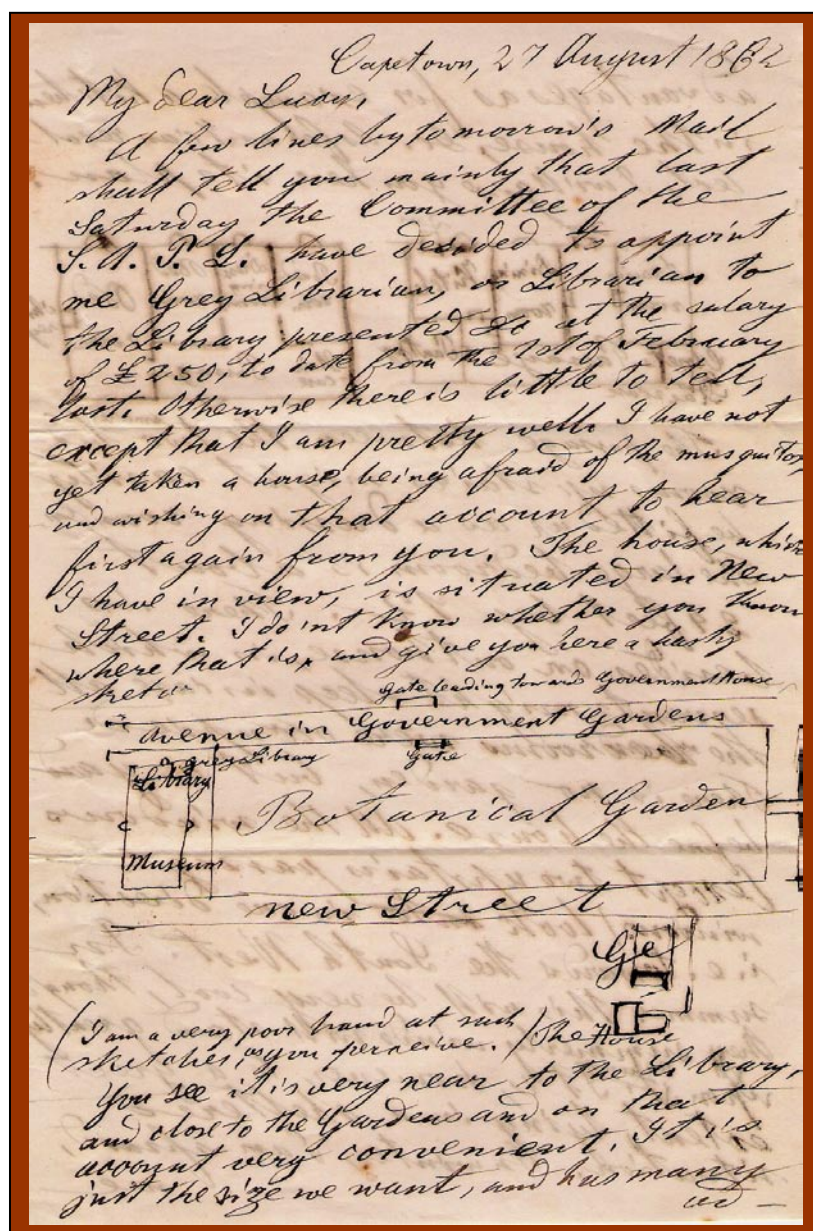 Capetown, 27 August 1862
My dear Lucy,
A few lines by tomorrow's Mail
shall tell you mainly that last
Saturday the Committee of the
S. A. P. L. have decided to appoint
me Grey Librarian, or Librarian to
the Library presented &c at the salary
of £250, to date from the 1st of February
last. Otherwise there is little to tell,
except that I am pretty well. I have not
yet taken a house, being afraid of the musquitos,
and wishing on that account to hear
first again from you. The house, which
I have in view, is situated in New
Street. I do'nt know whether you know
where that is, and give you here a hasty
sketch
gate leading towards Government House
Avenue in Government Gardens
Grey Library
Gate
Library
Botanical Garden
Museum
new Street
(I am a very poor hand at such
sketches, as you perceive.) The House
You see it is very near to the Library,
and close to the Gardens and on that
account very convenient. It is
just the size we want, and has many
ad-